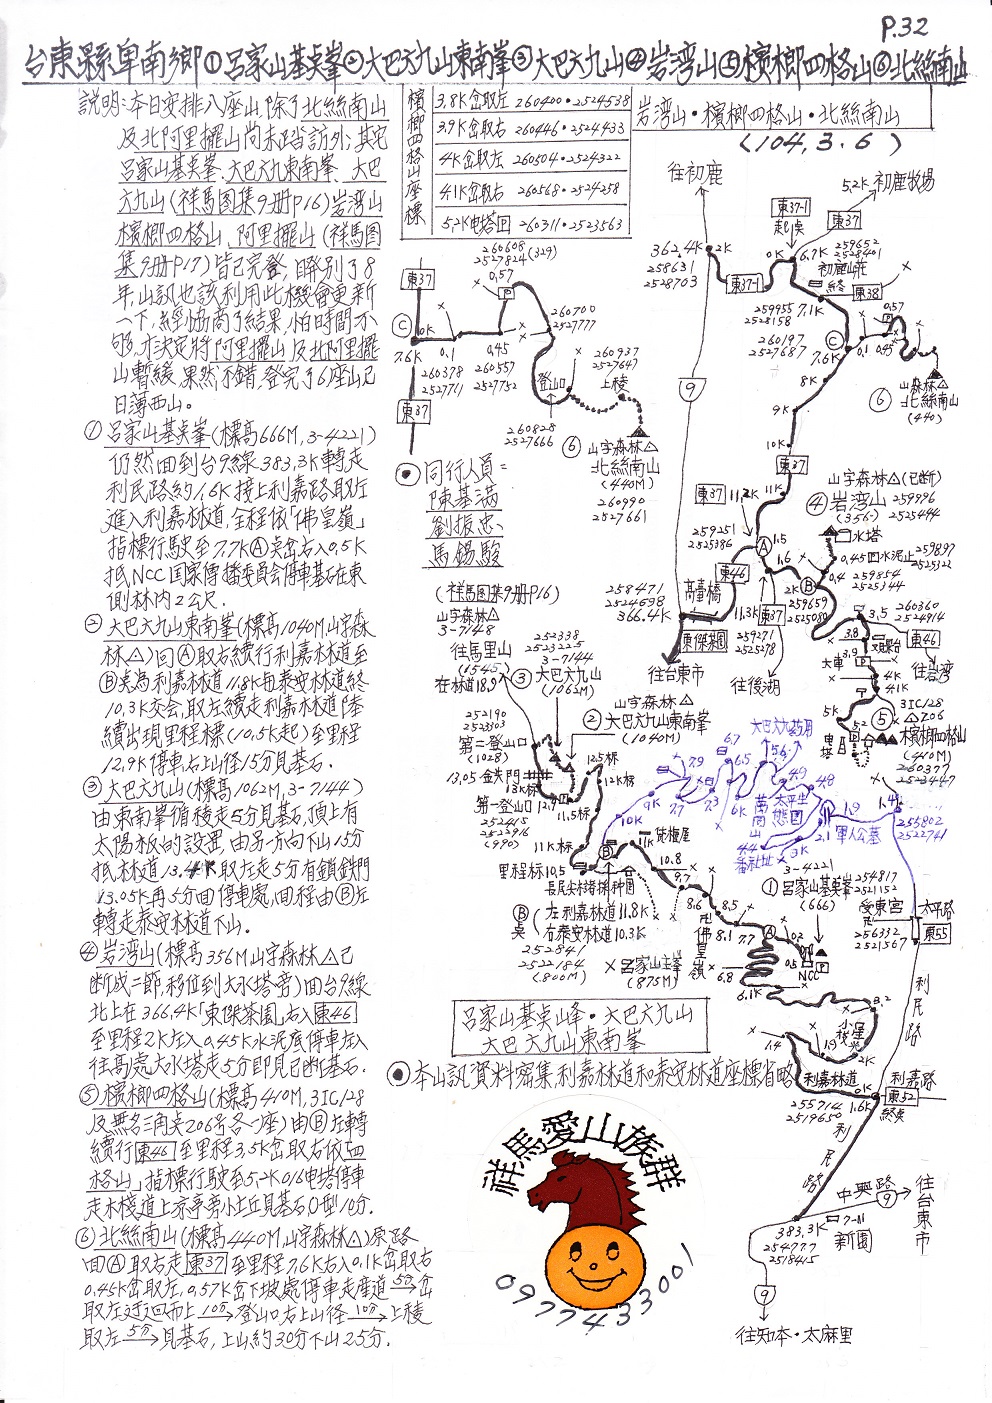 P.32
台東縣卑南鄉①呂家山基点峯②大巴六九山東南峯③大巴六九山④岩湾山⑤檳榔四格山⑥北絲南山
說明:本日安排八座山,除了北絲南山
及北阿里擺山尚未踏訪外,其它
呂家山基点峯、大巴六九東南峯、大巴
六九山(祥馬図集9册P16)岩湾山
檳榔四格山、阿里擺山(祥馬図
集9册P17)皆已完登,日昇別了8
年,山訊也該利用此機會更新
一下,經協商了結果,怕時間不
够,才決定將阿里擺山及北阿里擺
山暫緩,果然不錯,登完了6座山已
日薄西山。
①呂家山基点峯(標高666M,3-4221)
仍然回到台9線383.3K轉走
利民路約1.6K接上利嘉路取左
進入利嘉林道,全程依「佛皇嶺」
指標行駛至7.7KⒶ点岔右入0.5K
抵NCC国家傳播委員會停車基石在東
側林內2公尺.
②大巴六九山東南峯(標高1040M,山字森
林△)回Ⓐ取右續行利嘉林道至
Ⓑ点為利嘉林道11.8K与泰安林道終
10.3K交会,取左續走利嘉林道陸
續出現里程標(10.5K起)至里程
12.9K停車右上山徑15分見基石.
③大巴六九山(標高1062M,3-7144)
由東南峯循稜走5分見基石,頂上有
太陽板的設置,由另一方向下山15分
抵林道13.4K取左走5分有鎖鉄門
13.05K再5分回停車處,回程由Ⓑ左
轉走泰安林道下山.
④岩湾山(標高356M,山字森林△已
断成二節,移位到大水塔旁)回台9線
北上在366.4K「東傑茶園」右入東46
至里程2K左入0.45K水泥底停車左入
往高處大水塔走5分即見已断基石.
⑤檳榔四格山(標高410M,3IC128
及無名三角点206号各一座)由Ⓑ左轉
續行東46至里程3.5K岔取右依「四
格山」指標行駛至5.2K016电塔停車
走木棧道上涼亭旁小土丘見基石O型10分.
⑥北絲南山(標高440M,山字森林△)原路
回Ⓐ取右走東37至里程7.6K右入0.1K岔取右
0.45K岔取左,0.57K岔下坡處停車走產道5分→岔
取左迂迴而上10分→登山口右上山徑10分→上稜
取左5分→見基石,上山約30分下山25分.
檳榔四格山座標
3.8K岔取左 260400•2524538
3.9K岔取右 260446•2524433
4K岔取左 260504•2524322
4.1K岔取右 260568•2524258
5.2K电塔回 260311•2523563
岩湾山•檳榔四格山•北絲南山
(104.3.6)
往初鹿
5.2K 初鹿牧場
東37-1
起点
東37
362.4K
258631
2528703
2K
東37-1
0K
6.7K
259652
2528401
初鹿山莊
終
東38
259955
2528158
7.1K
0.57
Ⓒ
260197
2527687
7.6K
0.1
0.45
8K
9K
10K
山森林△
⑥北絲南山
(440)
東37
260608
2527824(329)
0.57
東37
Ⓒ
0K
7.6K
260378
2527711
0.1
0.45
260557
2527752
260700
2527777
登山口
260828
2527666
260937
2527647
上稜
⑥山字森林△
北絲南山
(440M)
260990
2527661
東37
⊙同行人員=
陳基滿
劉振忠
馬錫駿
9
東37
11.2K
11K
259251
2525386
Ⓐ
1.5
1.6
山字森林△(已断)
④岩湾山
(356)
259996
2525444
水塔
0.45回水泥止
259897
2525322
0.4
259854
2525344
2K
Ⓑ
259659
2525089
東46
高臺橋
258471
2524698
366.4K
東傑茶園
11.3K
東37
259271
2525278
往台東市
往後湖
3.5
260360
2524914
東46
3.8
3.9
大車
4K
4.1K
往岩湾
5K
5.2
电塔
3IC128
△206
⑤檳榔四格山
(410M)
260377
2523447
(祥馬図集9册P16)
山字森林△
3-7148
往馬里山
(1545)
在林道18.9
252338
2523225
3-7144
③大巴六九山
(1062M)
山字森林△
②大巴六九山東南峯
(1040M)
252190
252303
第二登山口
(1028)
13.05鉄門
13K标
12.9
12.5标
12K标
11.5标
第一登山口
252415
2522916
(990)
11K标
里程标10.5
Ⓑ
10K
9K
7.9
7.7
7.3
6.7
6.5
6K
5.6
4.9
4.8
大巴六九葯用
太平生態園
萬商山
4.4
番社址
3K
2.1
1.9
軍人公墓
1.4K
255802
2522741
11K
10.8
9.7
8.6
8.5
8.1
7.7
佛皇嶺
Ⓑ点
左利嘉林道11.8K
右泰安林道10.3K
252841
2522184
(800M)
×呂家山主峯
(875M)
3-4221
①呂家山基点峯
(666)
254817
2521152
Ⓐ
0.2
0.5
NCC
6.8
6.1K
3.2
2K
1.9
1.4
受東宮
256332
2521567
太平路
東55
利民路
利嘉林道
0K
利嘉路
東52
終点
255714
2519650
1.6K
利民路
呂家山基点峰•大巴六九山
大巴六九山東南峯
⊙本山訊資料密集,利嘉林道和泰安林道座標省略
祥馬愛山族群
0977433001
中興路
9
往台東市
383.3K
254777
2518415
7-11
新園
9
往知本•太麻里